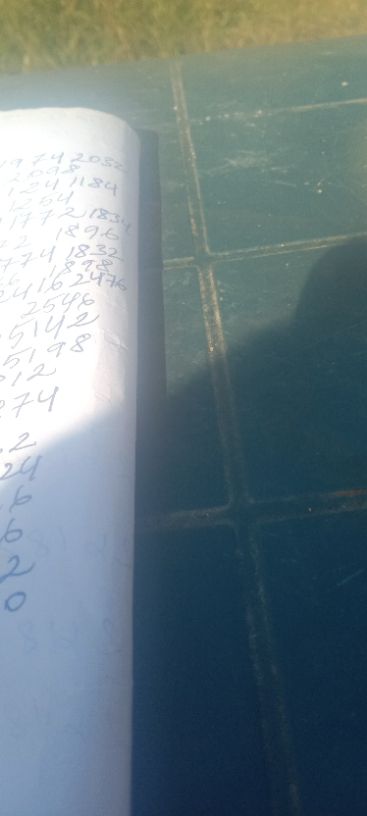 1974 2032
2098
1241184
1254
1772 1834
1896
774 1832
1898
2416 2476
2546
5142
5198
12
74
2
24
6
6
2
0